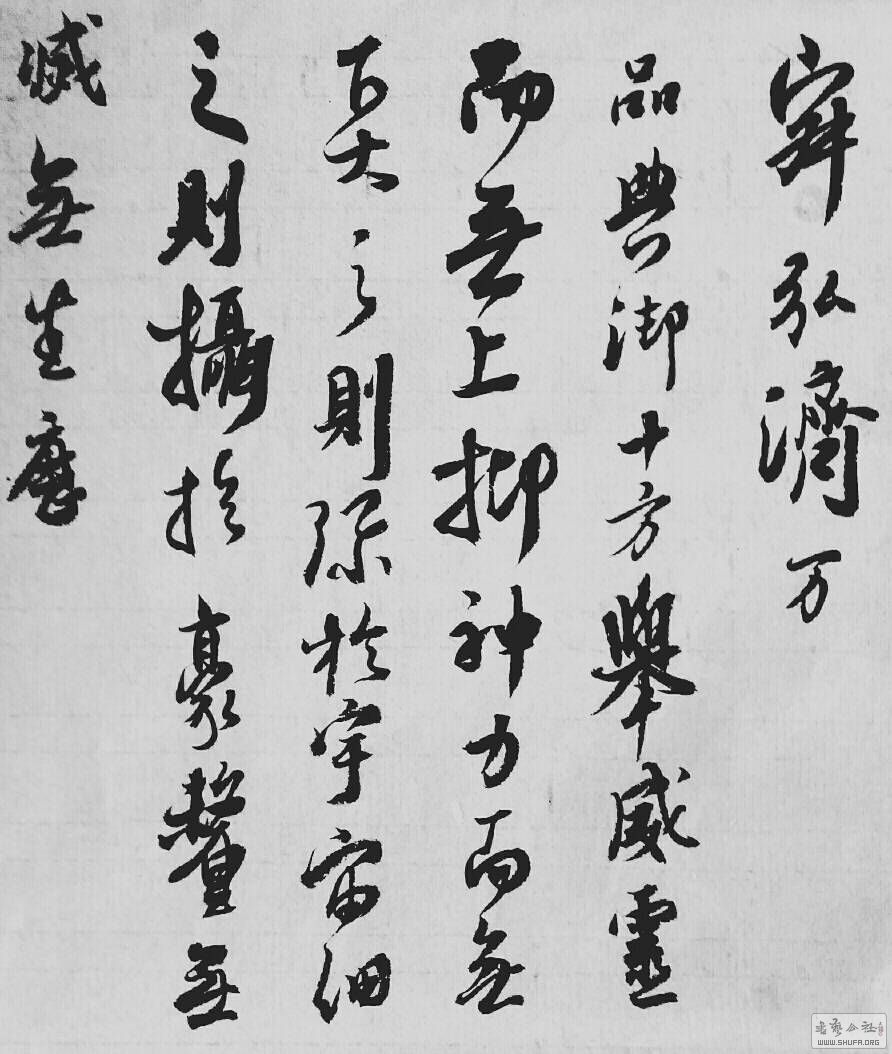 宰弘濟万
品典御十方舉威靈
而無上抑神力而無
下大之則彌於宇宙細
之則攝於豪釐無
滅無生歷
書藝公社
WWW.SHUFA.ORG